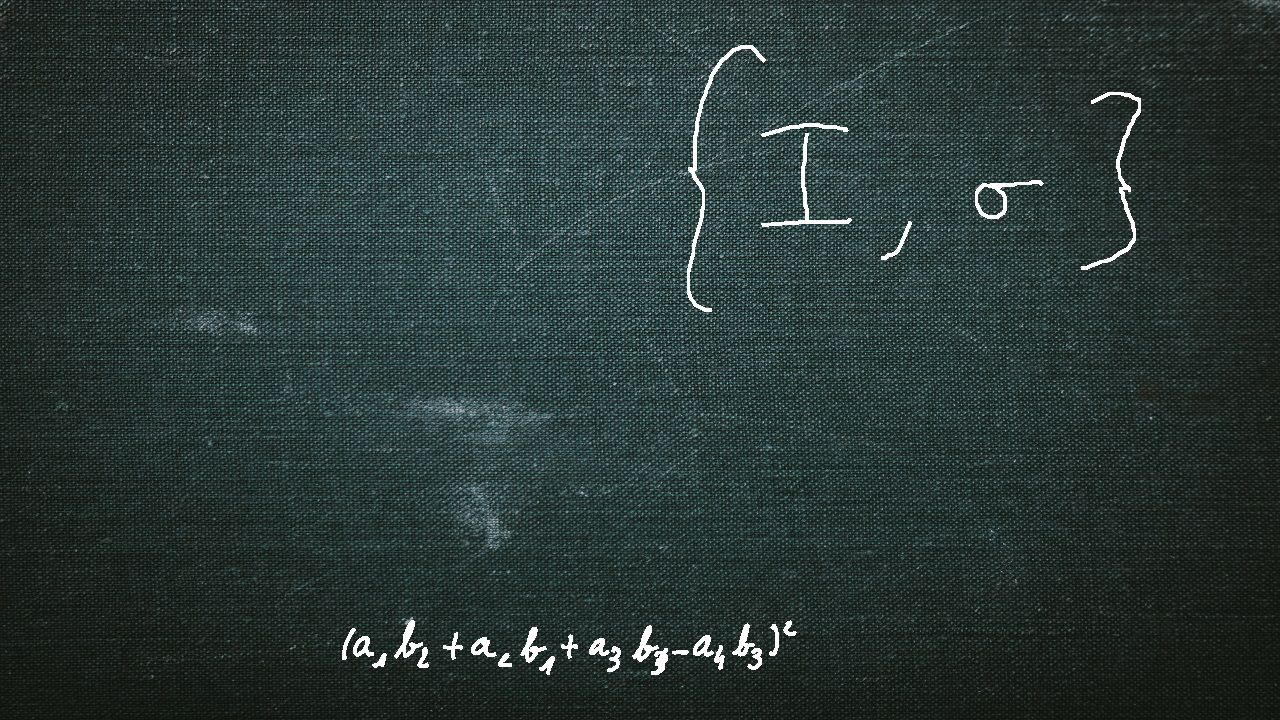 {I, σ}
(a₁b₂ + a₂b₁ + a₃b₄ - a₄b₃)²